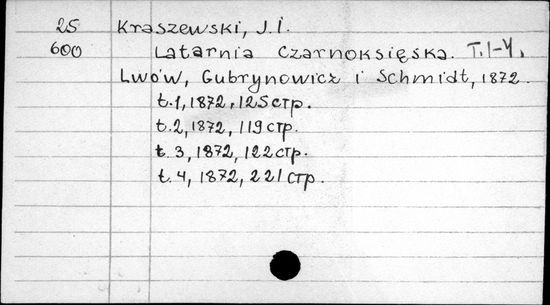 25 Kraszewski, J.I.
600 Latarnia czarnoksięska. T.1-4.
Lwów, Gubrynowicz i Schmidt, 1872.
t.1, 1872, 125 стр.
t.2, 1872, 119 стр.
t.3, 1872, 122 стр.
t.4, 1872, 221 стр.